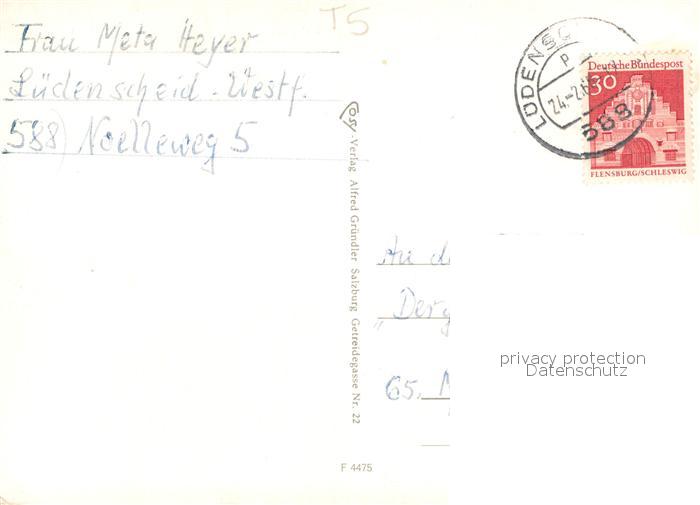 T5
Frau Meta Heyer
Lüdenscheid-Westf.
588 Noelleweg 5
Cosy-Verlag Alfred Gründler Salzburg Getreidegasse Nr. 22
F 4475
LÜDENSC
P
24.-2.6
588
Deutsche Bundespost
30
FLENSBURG/SCHLESWIG
An d
"Derg
65. M
privacy protection
Datenschutz